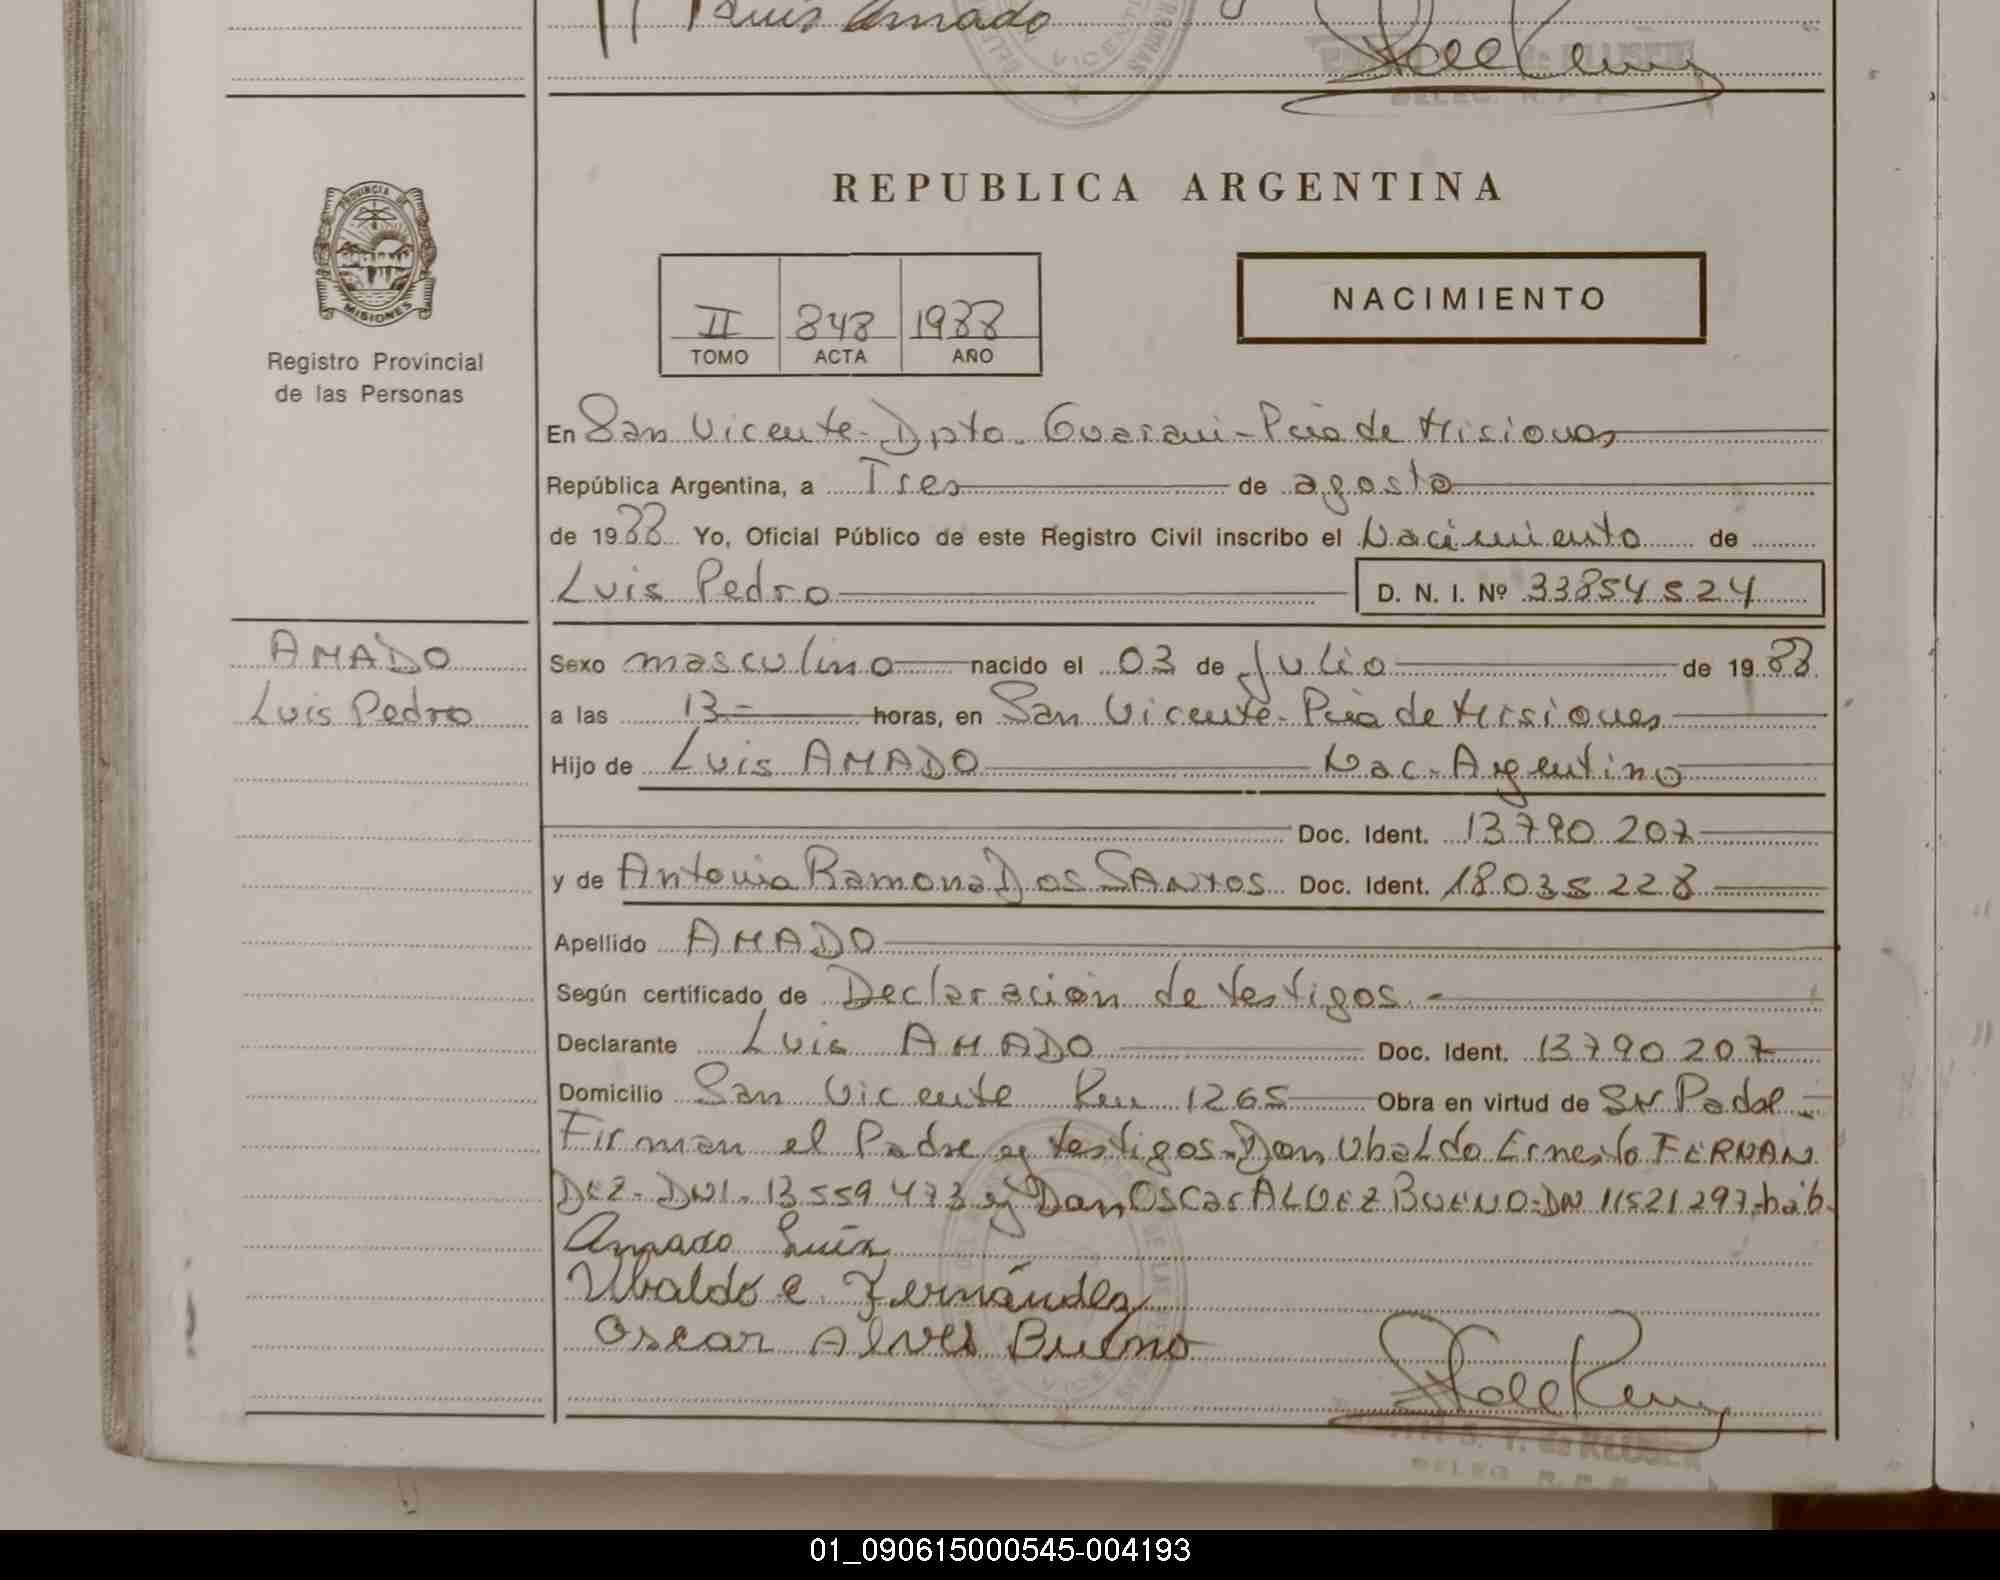 Luis Amado
REPUBLICA ARGENTINA
PROVINCIA DE
MISIONES
Registro Provincial
de las Personas
II 848 1988
TOMO ACTA AÑO
NACIMIENTO
En San Vicente - Dpto. Guarani - Pcia de Misiones
República Argentina, a Tres de agosto
de 1988 Yo, Oficial Público de este Registro Civil inscribo el Nacimiento de
Luis Pedro D. N. I. Nº 33854524
AMADO
Luis Pedro
Sexo masculino nacido el 03 de Julio de 1988
a las 13 - horas, en San Vicente - Pcia de Misiones
Hijo de Luis AMADO Nac. Argentino
Doc. Ident. 13.790.207
y de Antonia Ramona Dos SANTOS Doc. Ident. 18.035.228
Apellido AMADO
Según certificado de Declaración de testigos. -
Declarante Luis AMADO Doc. Ident. 13.790.207
Domicilio San Vicente Km 1265 Obra en virtud de Sr Padre -
Firman el Padre y testigos. Don Ubaldo Ernesto FERNAN
DEZ - DNI. 13.559.473 y Don Oscar ALVEZ BUENO - DN 11521297
Amado Luis
Ubaldo e. Fernández
Oscar Alves Bueno
01_090615000545-004193